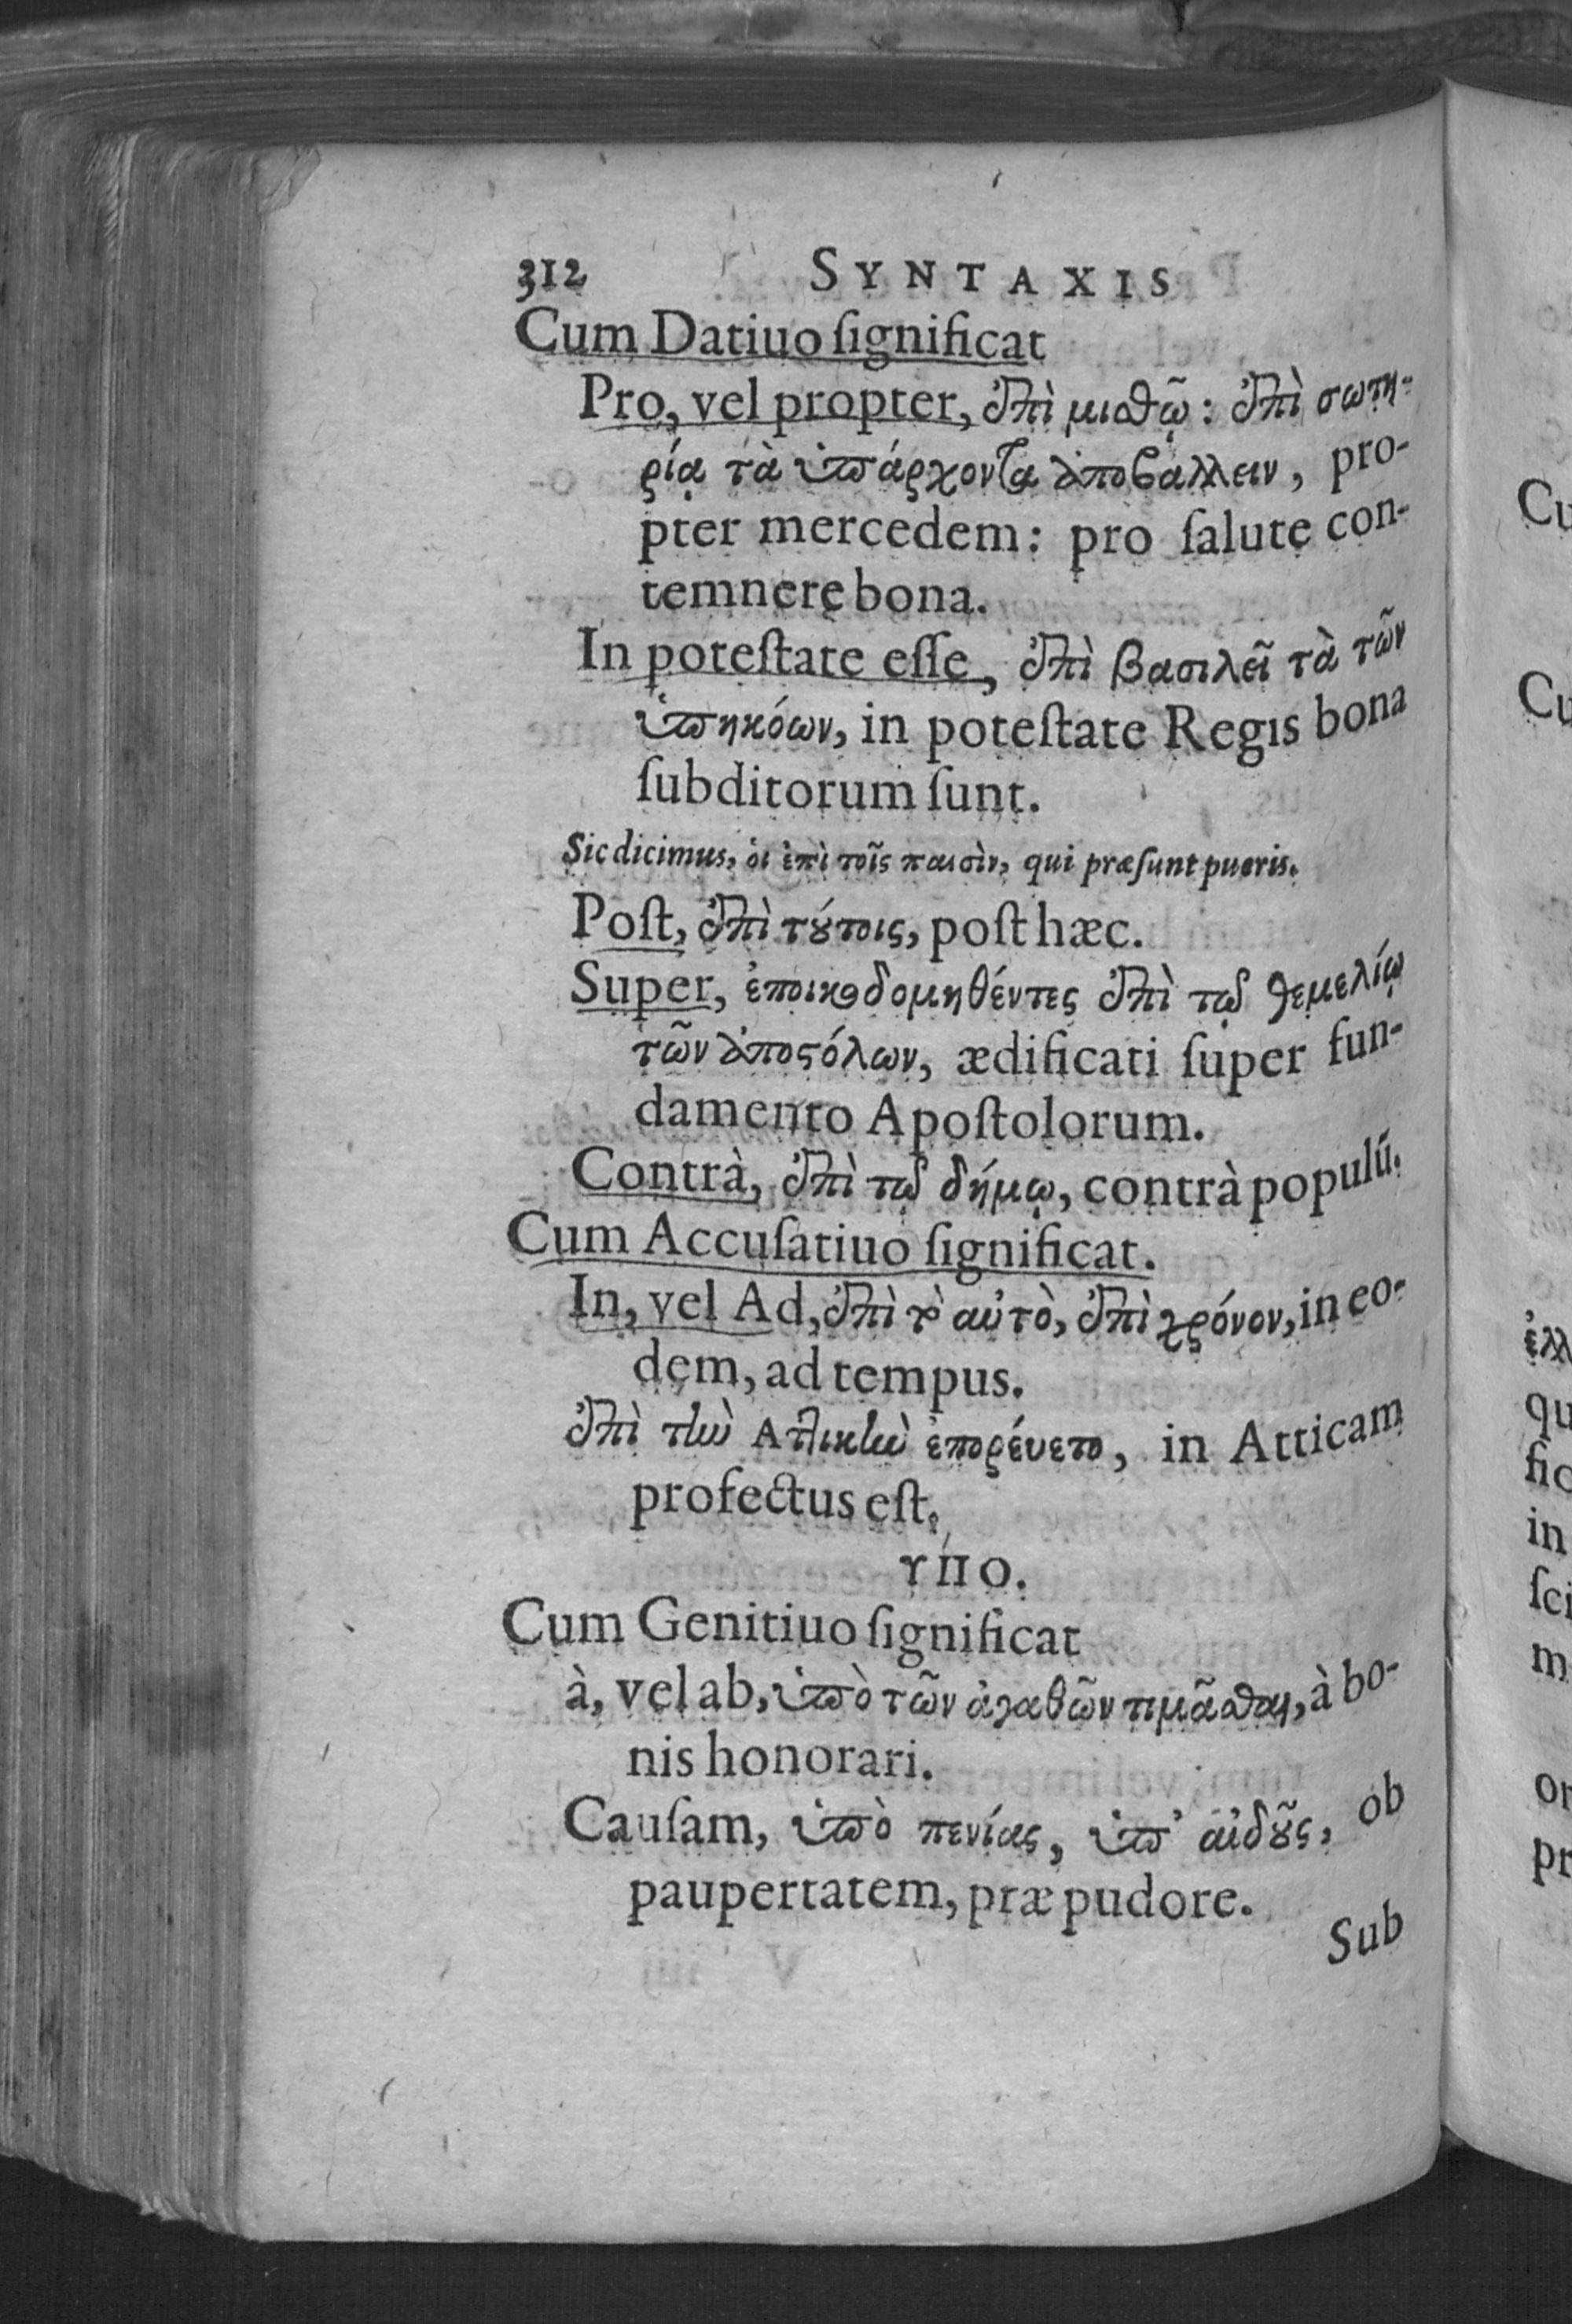 312 SYNTAXIS
Cum Datiuo ſignificat
Pro, vel propter, ἐπὶ μιϲθῷ: ἐπὶ σωτη-
ρίᾳ τὰ ὑπάρχοντα ἀποβαλλειν, pro-
pter mercedem: pro ſalute con-
temnere bona.
In poteſtate eſſe, ἐπὶ βασιλεῖ τὰ τῶν
ὑπηκόων, in poteſtate Regis bona
ſubditorum ſunt.
Sic dicimus, ὁι ἐπὶ τοῖς παισὶν, qui præſunt pueris.
Poſt, ἐπὶ τούτοις, poſt hæc.
Super, ἐποικοδομηθέντες ἐπὶ τῷ θεμελίῳ
τῶν ἀποςόλων, ædificati ſuper fun-
damento Apoſtolorum.
Contrà, ἐπὶ τῷ δήμῳ, contrà populũ.
Cum Accuſatiuo ſignificat.
In, vel Ad, ἐπὶ τὸ αὐτὸ, ἐπὶ χρόνον, in eo-
dem, ad tempus.
ἐπὶ τὴν Ατλικὴν ἐπορέυετο, in Atticam
profectus eſt.
ΥΠΟ.
Cum Genitiuo ſignificat
à, vel ab, ὑπὸ τῶν ἀγαθῶν τιμᾶσθαι, à bo-
nis honorari.
Cauſam, ὑπὸ πενίας, ὑπ' αἰδοῦς, ob
paupertatem, præ pudore.
Sub
Cu
Cu
ἐλλ
qu
fic
in
ſci
m
or
pr